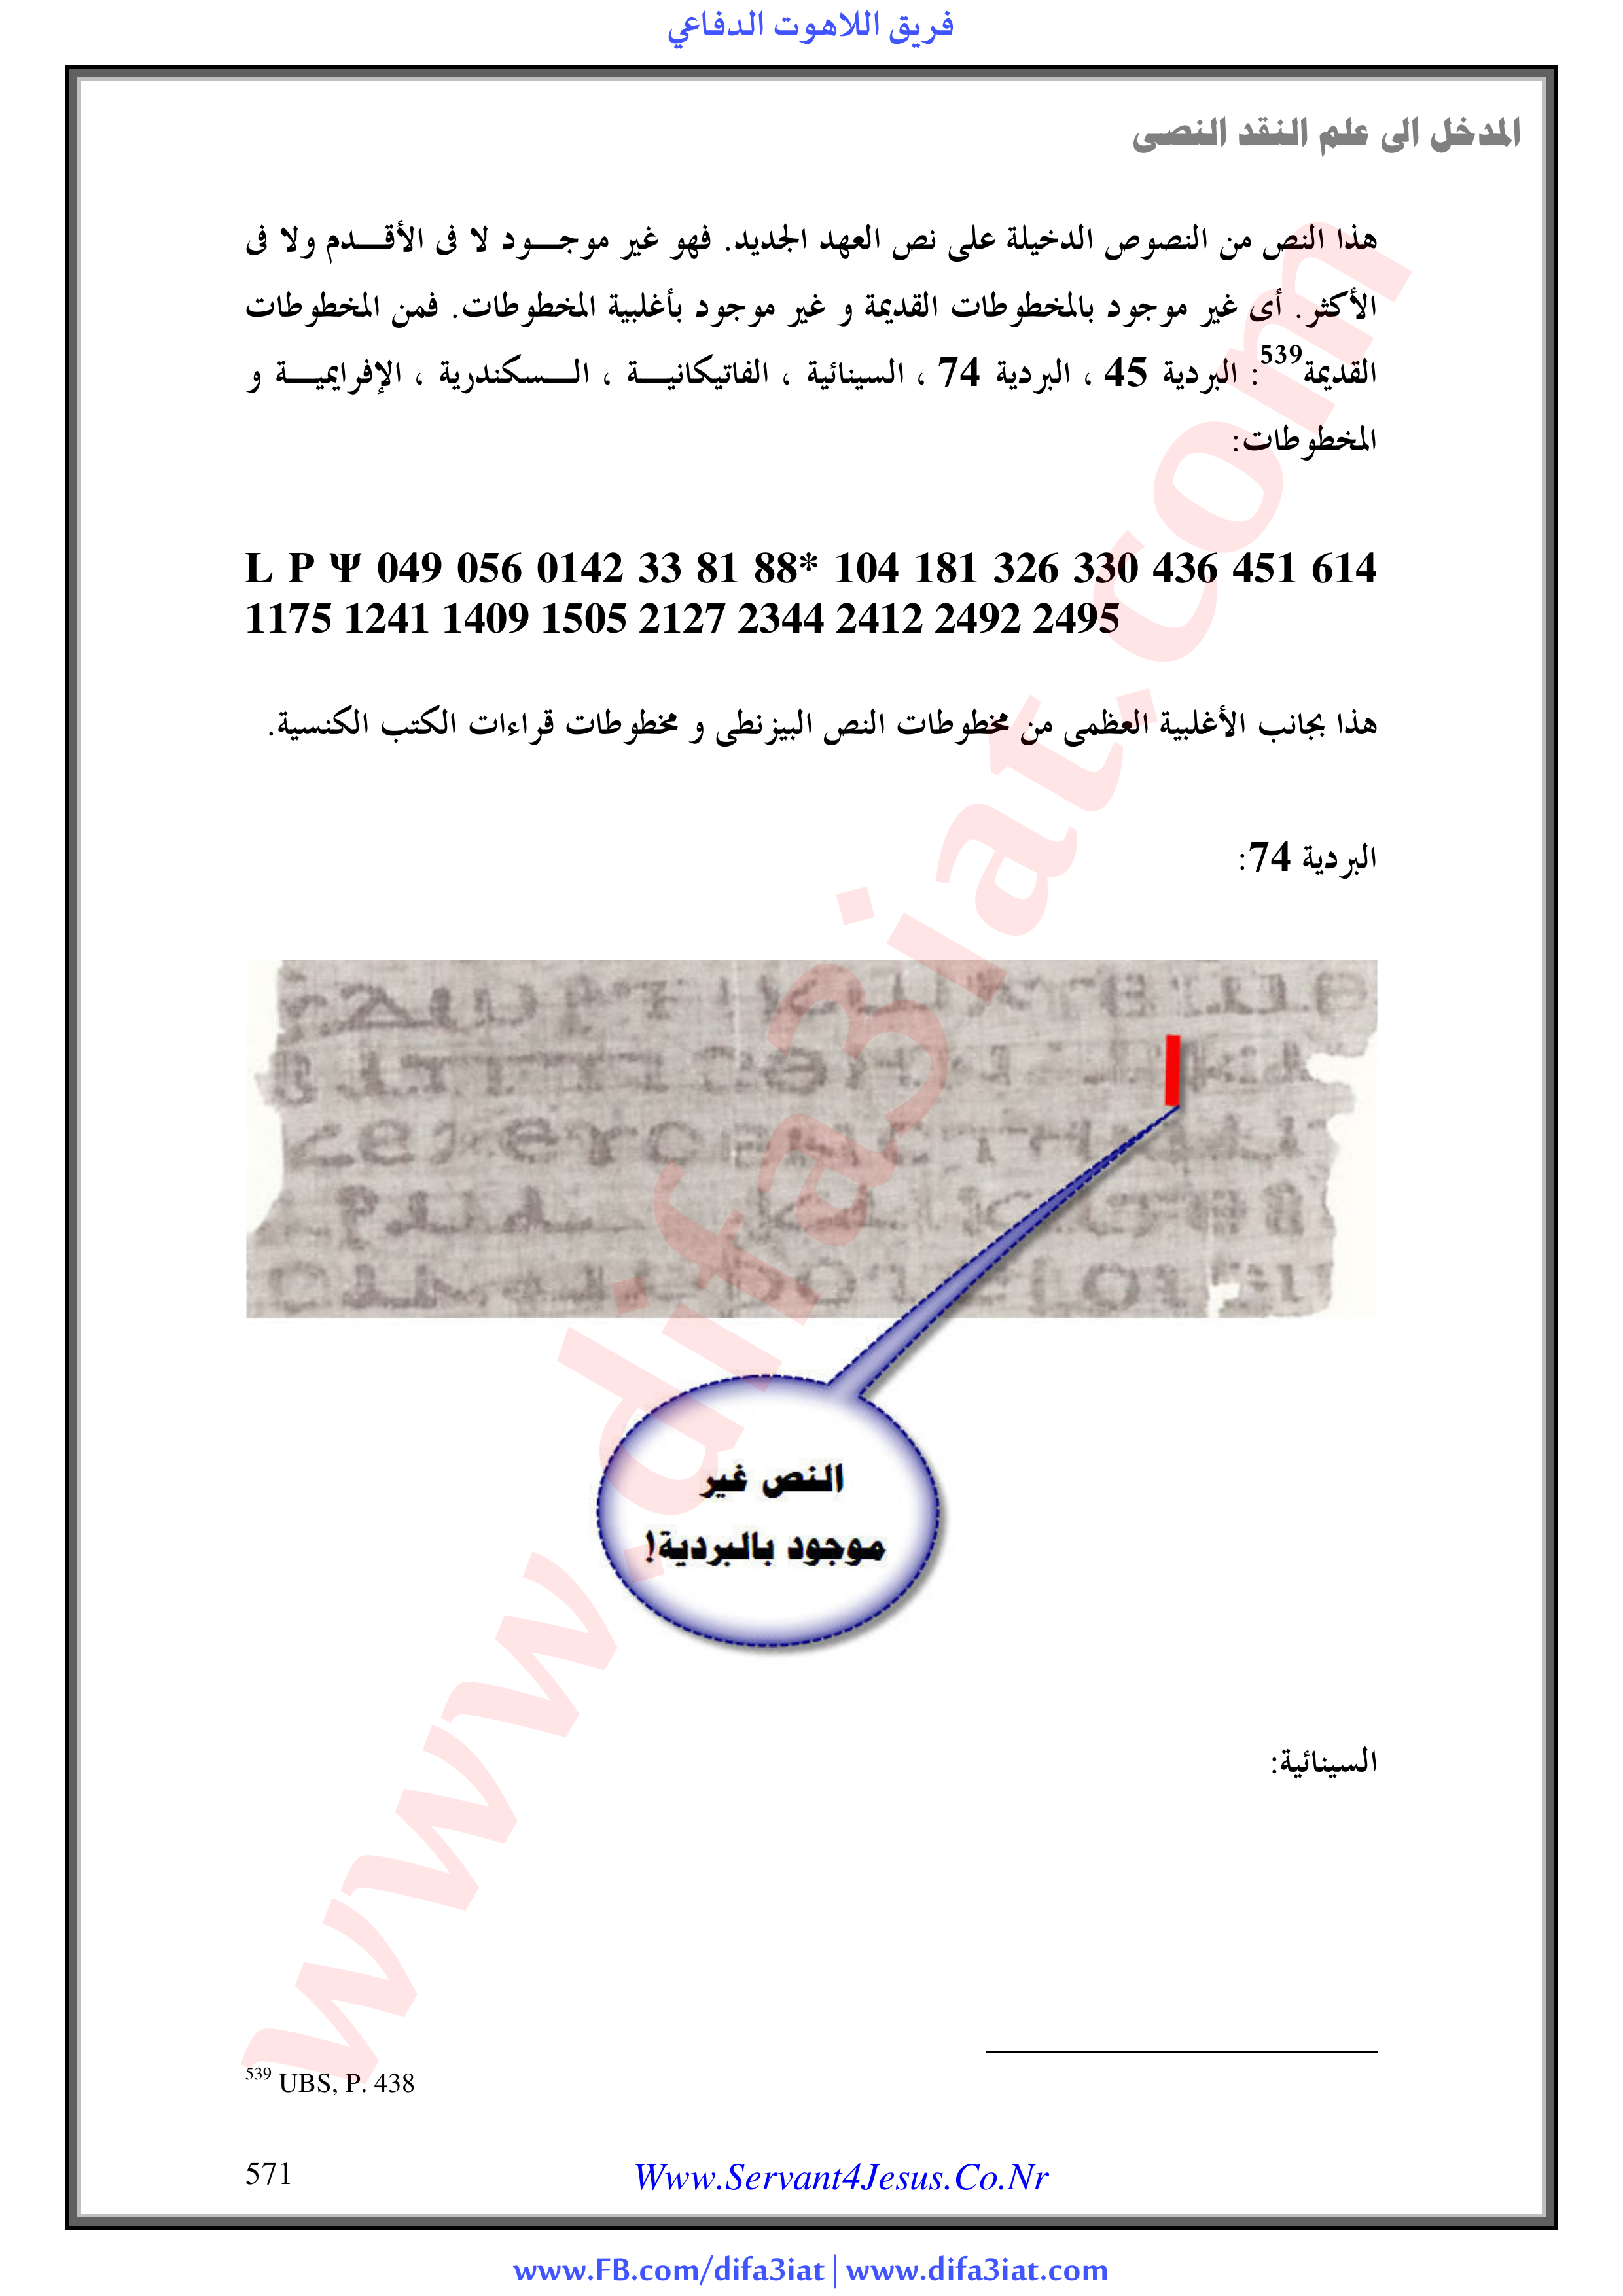 فريق اللاهوت الدفاعي
المدخل الى علم النقد النصى
هذا النص من النصوص الدخيلة على نص العهد الجديد. فهو غير موجـــود لا فى الأقـــدم ولا فى
الأكثر. أى غير موجود بالمخطوطات القديمة و غير موجود بأغلبية المخطوطات. فمن المخطوطات
القديمة539: البردية 45 ، البردية 74 ، السينائية ، الفاتيكانيـــة ، الـــسكندرية ، الإفرايميـــة و
المخطوطات:
L P Ψ 049 056 0142 33 81 88* 104 181 326 330 436 451 614
1175 1241 1409 1505 2127 2344 2412 2492 2495
هذا بجانب الأغلبية العظمى من مخطوطات النص البيزنطى و مخطوطات قراءات الكتب الكنسية.
البردية 74:
النص غير
موجود بالبردية!
السينائية:
539 UBS, P. 438
571
Www.Servant4Jesus.Co.Nr
www.FB.com/difa3iat | www.difa3iat.com
www.difa3iat.com